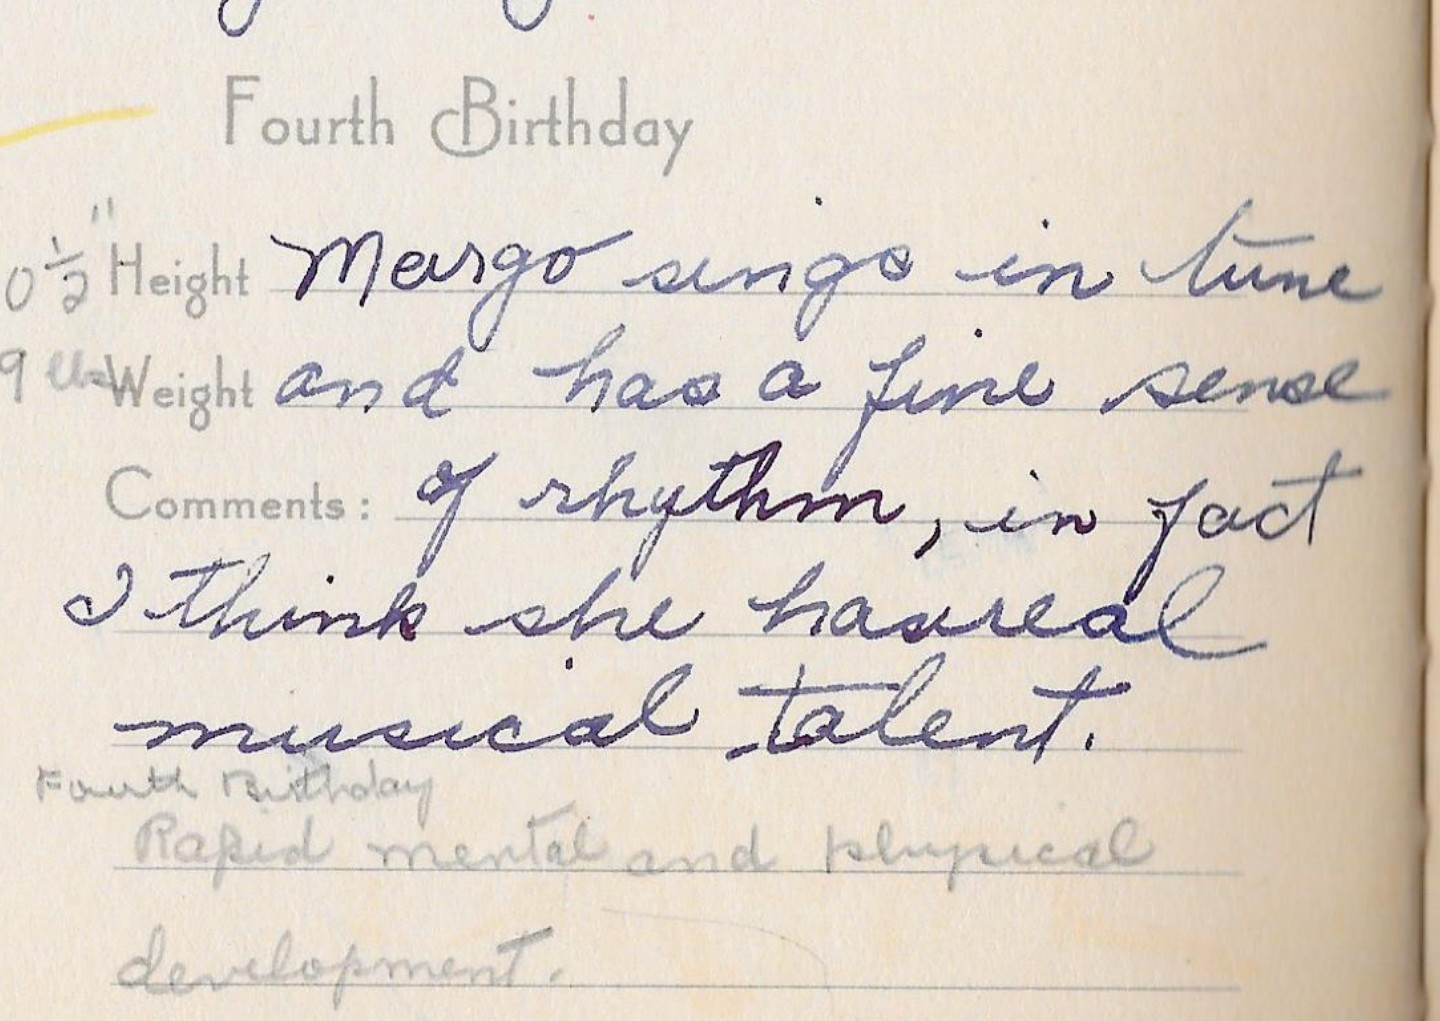 Fourth Birthday
0 ½" Height Margo sings in tune
9 lbs Weight and has a fine sense
Comments: of rhythm, in fact
I think she has real
musical talent.
Fourth Birthday
Rapid mental and physical
development.